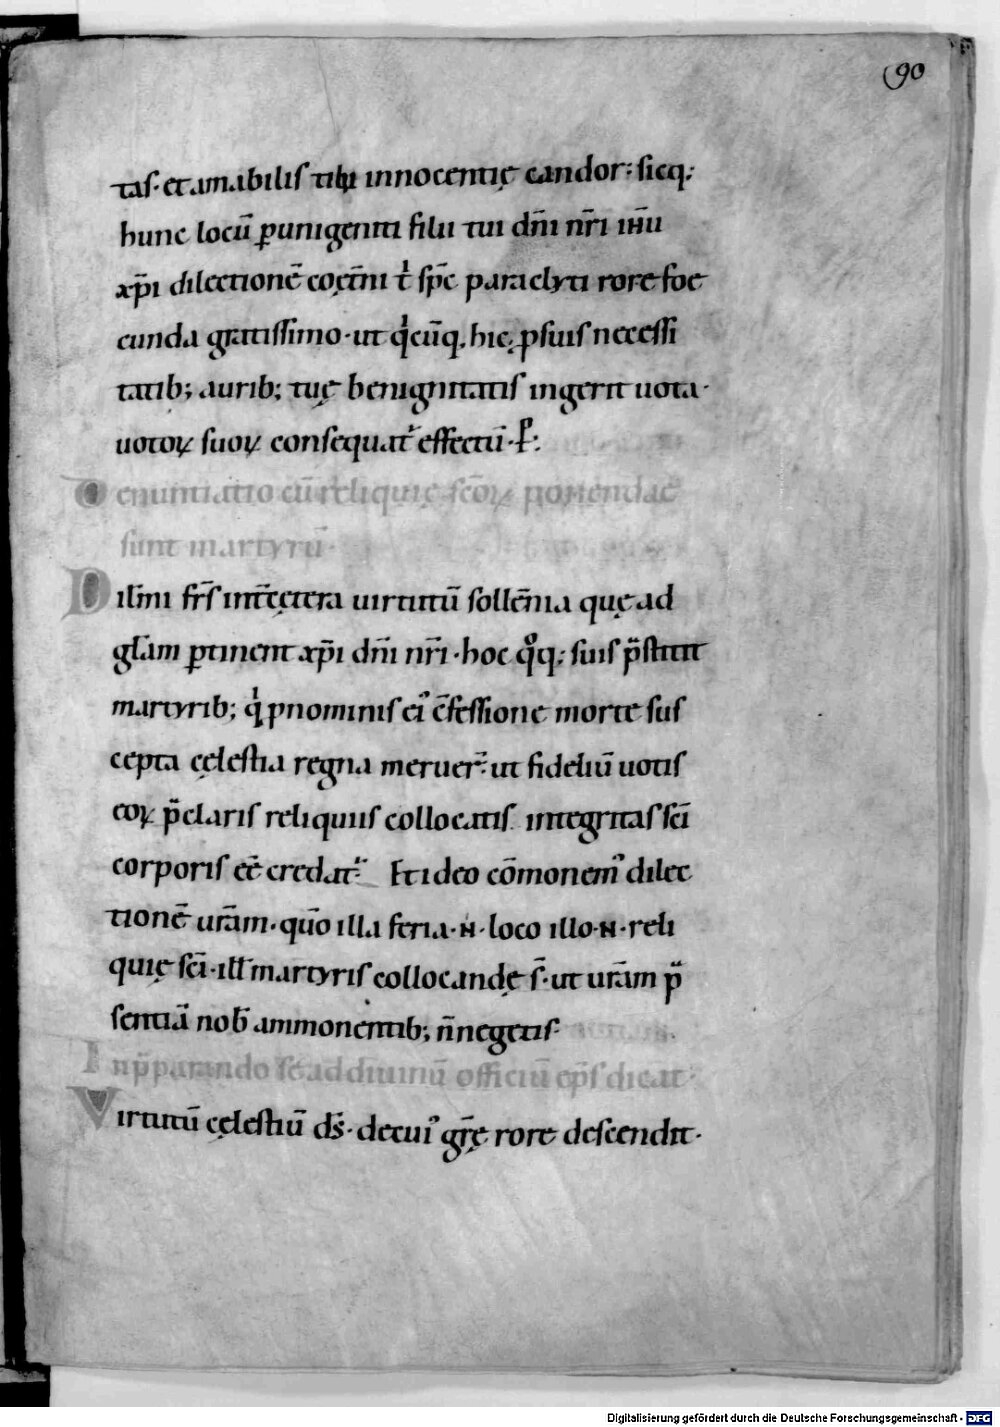 90
taſ· et amabiliſ tibi innocentię candor: ſicq;
hunc locū ꝑunigeniti filii tui dn̄i nr̄i ihū
xp̄i dilectionē coęt̄ni t̓ ſp̄c paraclyti rore foe
cunda gratiſſimo· ut qͥcūq; hic, ꝓſuiſ neceſſi
tatib; aurib; tuę benignitatiſ ingerit uota·
uotoꝝ ſuoꝝ conſequat᷑ effectū· ꝑ:
Denuntiatio cū reliquię ſcōꝝ ponendae
ſunt martyrū·
Dil̄mi fr̄ſ int̄cętera uirtutū ſollēnia quę ad
gl̄am ꝑtinent xp̄i dn̄i nr̄i· hoc qͦq; ſuiſ p̄ſtitit
martyrib; qͥ ꝓnominiſ eiꝰ c̄feſſione morte ſuſ
cepta cęleſtia regna meruer̄: ut fideliū uotiſ
eoꝝ p̄clariſ reliquiiſ collocatiſ. integritaſ ſc̄i
corporiſ eē credat᷑ Et ideo cōmonemꝰ dilec
tionē ur̄am· quō illa feria· ɴ· loco illo· ɴ· reli
quię ſc̄i· ill̄ martyriſ collocandę ſ̄· ut ur̄am p̄
ſentiā nob̄ ammonentib; n̄negetiſ·
In p̄parando ſe ad diuinū officiū ep̄ſ dicat·
Virtutū cęleſtiū dſ̄· decuiꝰ gr̄ę rore deſcendit·
Digitalisierung gefördert durch die Deutsche Forschungsgemeinschaft - DFG